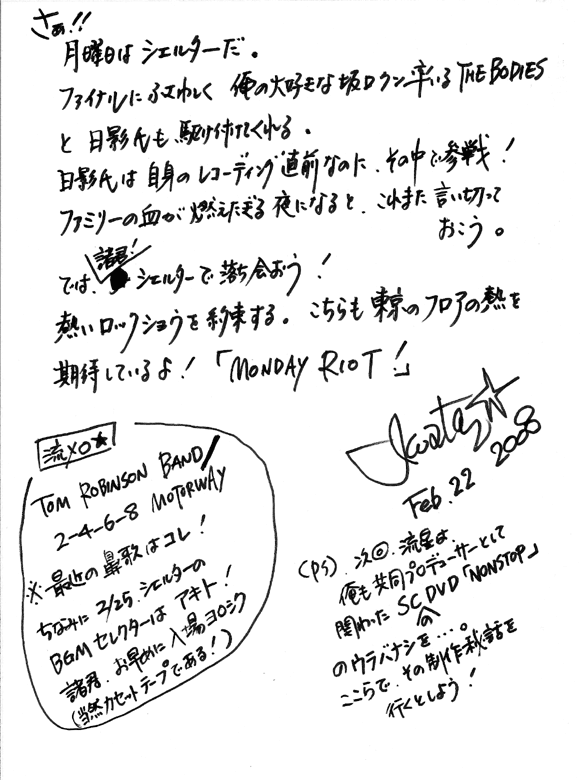 さぁ!!
月曜日はシェルターだ。
ファイナルにふさわしく 俺の大好きな坂ロクン率いるTHE BODIES
と日影氏も駆け付けてくれる。
日影氏は自身のレコーディング直前なのに、その中で参戦!
ファミリーの血が燃えたぎる夜になると、これまた言い切って
おこう。
諸君!
では、シェルターで落ち会おう!
熱いロックショウを約束する。こちらも東京のフロアの熱を
期待しているよ!「MONDAY RIOT!」
流メロ★
TOM ROBINSON BAND/
2-4-6-8 MOTORWAY
※最近の鼻歌はコレ!
ちなみに2/25.シェルターの
BGMセレクターはアキト!
諸君、お早めに入場ヨロシク
(当然カセットテープである!)
Feb.22 2008
(PS)、次回、流星は、
俺も共同プロデューサーとして
関わったSCのDVD「NONSTOP」
のウラバナシを…。
ここらで、その制作秘話を
行くとしよう!